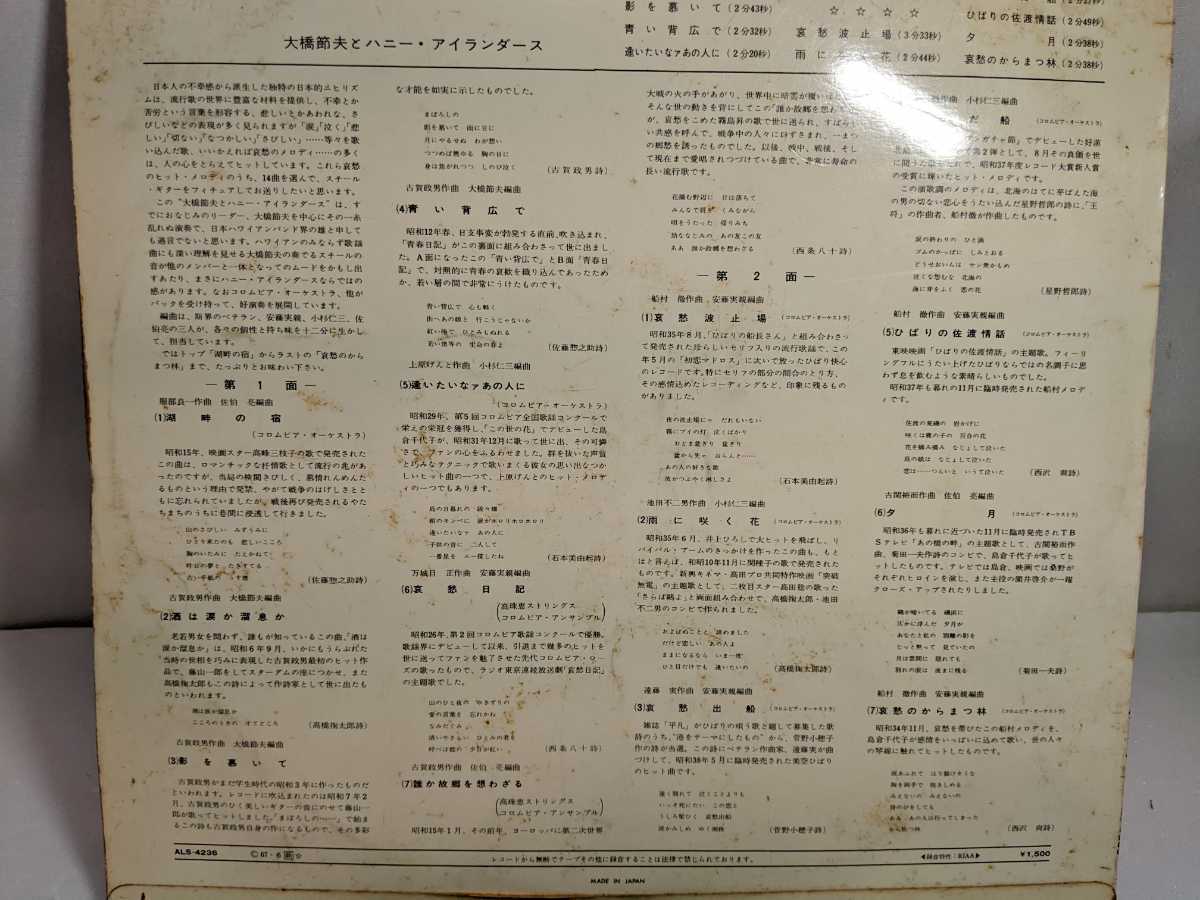 影を慕いて(2分43秒)
青い背広で(2分32秒)
逢いたいなァあの人に(2分20秒)
☆ ☆ ☆ ☆
哀愁波止場(3分33秒)
花(2分44秒)
ひばりの佐渡情話(2分49秒)
夕月(2分38秒)
哀愁のからまつ林(2分38秒)
大橋節夫とハニー・アイランダース
日本人の不幸感から派生した独特の日本的ニヒリズ
ムは、流行歌の世界に豊富な材料を提供し、不幸とか
苦労という言葉を形容する、悲しいとかあわれな、さ
びしいなどの表現が多く見られますが「涙」「泣く」「悲
しい」「切ない」「なつかしい」「さびしい」……等々を歌
い込んだ歌、いいかえれば哀愁のメロディ……の多く
は、人の心をとらえてヒットしています。これら哀愁
のヒット・メロディのうち、14曲を選んで、スチール
・ギターをフィチュアしてお送りしたいと思います。
この"大橋節夫とハニー・アイランダース"は、す
でにおなじみのリーダー、大橋節夫を中心にその一糸
乱れぬ演奏で、日本ハワイアンバンド界の雄と申して
も過言でないと思います。ハワイアンのみならず歌謡
曲にも深い理解を見せる大橋節夫の奏でるスチールの
音が他のメンバーと一体となってのムードをかもし出
すあたり、まさにハニー・アイランダースならではの
感があります。なおコロムビア・オーケストラ、他が
バックを受け持って、好演奏を展開しています。
編曲は、斯界のベテラン、安藤実親、小杉仁三、佐
伯亮の三人が、各々の個性と持ち味を十二分に生かし
て、担当しています。
ではトップ「湖畔の宿」からラストの「哀愁のから
まつ林」まで、たっぷりとお味わい下さい。
—第1面—
服部良一作曲 佐伯 亮編曲
(1)湖畔の宿
(コロムビア・オーケストラ)
昭和15年、映画スター高峰三枝子の歌で発売された
この曲は、ロマンチックな抒情歌として流行の兆があ
ったのですが、当局の検閲きびしく、慕情れんめんた
るものという理由で発禁、やがて戦争のはげしさとと
もに忘れられていましたが、戦後再び発売されるやた
ちまちのうちに巷間に浸透して行きました。
山のさびしい みずうみに
ひとり来たのも 悲しいこころ
胸のいたみに たえかねて
昨日の夢と たきすてる
古い手紙の うす煙
(佐藤惣之助詩)
古賀政男作曲 大橋節夫編曲
(2)酒は涙か溜息か
老若男女を問わず、誰もが知っているこの曲、「酒は
涙か溜息か」は、昭和6年9月、いかにもうらぶれた
当時の世相を巧みに表現した古賀政男最初のヒット作
品で、藤山一郎をしてスターダムの座につかせ、また
高橋掬太郎もこの詩によって作詩家として世に出たも
のといわれます。
酒は涙か溜息か
こころのうさの すてどころ
(高橋掬太郎詩)
古賀政男作曲 大橋節夫編曲
(3)影を慕いて
古賀政男がまだ学生時代の昭和3年に作ったものだと
いわれます。レコードに吹込まれたのは昭和7年2
月、古賀政男のひく美しいギターの音にのせて藤山一
郎が歌ってヒットしました。「まぼろしの……」で始ま
るこの詩も古賀政男自身の作になるもので、その多彩
な才能を如実に示したものでした。
まぼろしの
影を慕いて 雨に日に
月にやるせぬ わが想い
つつめば燃ゆる 胸の火に
身は焦がれつつ しのび泣く
(古賀政男詩)
古賀政男作曲 大橋節夫編曲
(4)青い背広で
昭和12年春、日支事変が勃発する直前、吹き込まれ、
「青春日記」がこの裏面に組み合わさって世に出まし
た。A面になったこの「青い背広で」とB面「青春日
記」で、対照的に青春の哀歓を織り込んであったため
か、若い層の間で非常にうけたものです。
青い背広で 心も軽く
街へあの娘と 行こうじゃないか
紅い椿で ひとみもぬれる
若い僕等の 生命の春よ
(佐藤惣之助詩)
上原げんと作曲 小杉仁三編曲
(5)逢いたいなァあの人に
(コロムビア・オーケストラ)
昭和29年、第5回コロムビア全国歌謡コンクールで
栄えの栄冠を獲得し、「この世の花」でデビューした島
倉千代子が、昭和31年12月に歌って世に出、その可憐
さで、ファンの心をふるわせました。群を抜いた声質
と巧みなテクニックで歌いまくる彼女の思い出なつか
しいヒット曲の一つで、上原げんとのヒット・メロデ
ィの一つでもあります。
島の日暮れの 段々畑
紺のモンペに 涙がホロリホロホロリ
逢いたいなァ あの人に
子供の昔に 二人して
一番星を エー探したね
(石本美由起詩)
万城目 正作曲 安藤実親編曲
(6)哀愁日記
(高珠恵ストリングス
コロムビア・アンサンブル)
昭和26年、第2回コロムビア歌謡コンクールで優勝、
歌謡界にデビューして以来、引退まで幾多のヒットを
世に送ってファンを魅了させた先代コロムビア・ロー
ズの歌ったもので、ラジオ東京連続放送劇「哀愁日記」
の主題歌でした。
(西条八十詩)
古賀政男作曲 佐伯 亮編曲
(7)誰か故郷を想わざる
(高珠恵ストリングス
コロムビア・アンサンブル)
昭和15年1月、その前年、ヨーロッパに第二次世界
大戦の火の手があがり、世界中に暗雲が覆い
そんな世の動きを背にしてこの「誰か故郷を想わ
が、哀愁をこめた霧島昇の歌で世に送られ、すばらし
い共感を呼んで、戦争中の人々に口ずさまれ、一まつ
の郷愁を誘ったものでした。以後、戦中、戦後、そし
て現在まで愛唱されつづけている曲で、非常に寿命の
長い流行歌です。
花摘む野辺に 日は落ちて
みんなで肩を くみながら
唄をうたった 帰りみち
幼ななじみの あの友この友
ああ 誰か故郷を想わざる
(西条八十詩)
—第2面—
船村 徹作曲 安藤実親編曲
(1)哀愁波止場(コロムビア・オーケストラ)
昭和35年8月、「ひばりの船長さん」と組み合わさっ
て発売された珍らしいセリフ入りの流行歌謡で、この
年5月の「初恋マドロス」に次いで放ったひばり快心
のレコードです。特にセリフの部分の間合のとり方、
その感情込めたレコーディングなど、印象に残るもの
がありました。
夜の波止場にゃ だれもいない
霧にブイの灯 泣くばかり
おどま盆ぎり 盆ぎり
盆から先きゃ おらんと…
あの人の好きな歌
波がつぶやく淋しさよ
(石本美由起詩)
池田不二男作曲 小杉仁三編曲
(2)雨に咲く花(コロムビア・オーケストラ)
昭和35年6月、井上ひろしで大ヒットを飛ばし、リ
バイバル・ブームのきっかけを作ったこの曲も、もと
はと言えば、昭和10年11月に関種子の歌で発売された
ものです。新興キネマ・高田プロ共同特作映画「突破
無電」の主題歌として、二枚目スター高田稔の歌った
「さらば鴎よ」と両面組み合わせで、高橋掬太郎・池田
不二男のコンビで作られました。
およばぬことと 諦めました
だけど恋しい あの人よ
ままになるなら いま一度
ひと目だけでも 逢いたいの
(高橋掬太郎詩)
遠藤 実作曲 安藤実親編曲
(3)哀愁出船(コロムビア・オーケストラ)
雑誌「平凡」がひばりの唄う歌と題して募集した歌
詩のうち、"港をテーマにしたもの"から、菅野小穂子
作の詩が当選。この詩にベテラン作曲家、遠藤実が曲
づけして、昭和38年5月に臨時発売された美空ひばり
のヒット曲です。
遠く別れて 泣くことよりも
いっそ死にたい この恋と
うしろ髪ひく 哀愁出船
涙かみしめ ゆく潮路
(菅野小穂子詩)
作曲 小杉仁三編曲
だ船(コロムビア・オーケストラ)
ンガチャ節」でデビューした好漢
第2弾として、8月その真価を世
に問うた歌 で、昭和37年度レコード大賞新人賞
の受賞に輝いたヒット・メロディです。
この演歌調のメロディは、北海のはてに芽ばえた海
の男の切ない恋心をうたい込んだ星野哲郎の詩に、「王
将」の作曲者、船村徹が作曲したものです。
涙の終わりの ひと滴
ゴムのかっぱに しみとおる
どうせおいらは ヤン衆かもめ
泣くな怨むな 北海の
海に芽をふく 恋の花
(星野哲郎詩)
船村 徹作曲 安藤実親編曲
(5)ひばりの佐渡情話(コロムビア・オーケストラ)
東映映画「ひばりの佐渡情話」の主題歌。フィーリ
ングフルにうたい上げたひばりならではの名調子に思
わず息を飲むような素晴らしいものでした。
昭和37年も暮れの11月に臨時発売された船村メロデ
ィです。
佐渡の荒磯の 岩かげに
咲くは鹿の子の 百合の花
花を摘み摘み なじょして泣いた
島の娘は なじょして泣いた
恋は……つらいと いうて泣いた
(西沢 爽詩)
古関裕而作曲 佐伯 亮編曲
(6)夕月(コロムビア・オーケストラ)
昭和36年も暮れに近づいた11月に臨時発売されたTB
Sテレビ「あの橋の畔」の主題歌として、古関裕而作
曲、菊田一夫作詩のコンビで、島倉千代子が歌ってヒ
ットしたものです。テレビでは島倉、映画では桑野が
それぞれヒロインを演じ、また主役の園井啓介が一躍
クローズ・アップされたりしました。
(菊田一夫詩)
船村 徹作曲 安藤実親編曲
(7)哀愁のからまつ林(コロムビア・オーケストラ)
昭和34年11月、哀愁を帯びたこの船村メロディを、
島倉千代子が感情をいっぱいに込めて歌い、世の人々
の琴線に触れてヒットしたものです。
涙あふれて はり裂けそうな
胸を両手で 抱きしめる
みえないの みえないの
背のびをしても
ああ あの人は行ってしまった
からまつ林
(西沢 爽詩)
ALS-4236
Ⓒ67・6 ☆
レコードから無断でテープその他に録音することは法律で禁じられております。
◀録音特性:RIAA▶
¥1,500
MADE IN JAPAN